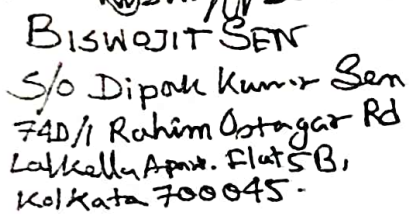 BISWOJIT SEN
S/O Dipak Kumar Sen
74D/1 Rahim Ostagar Rd
Lalkella Apart. Flat 5B,
Kolkata 700045.